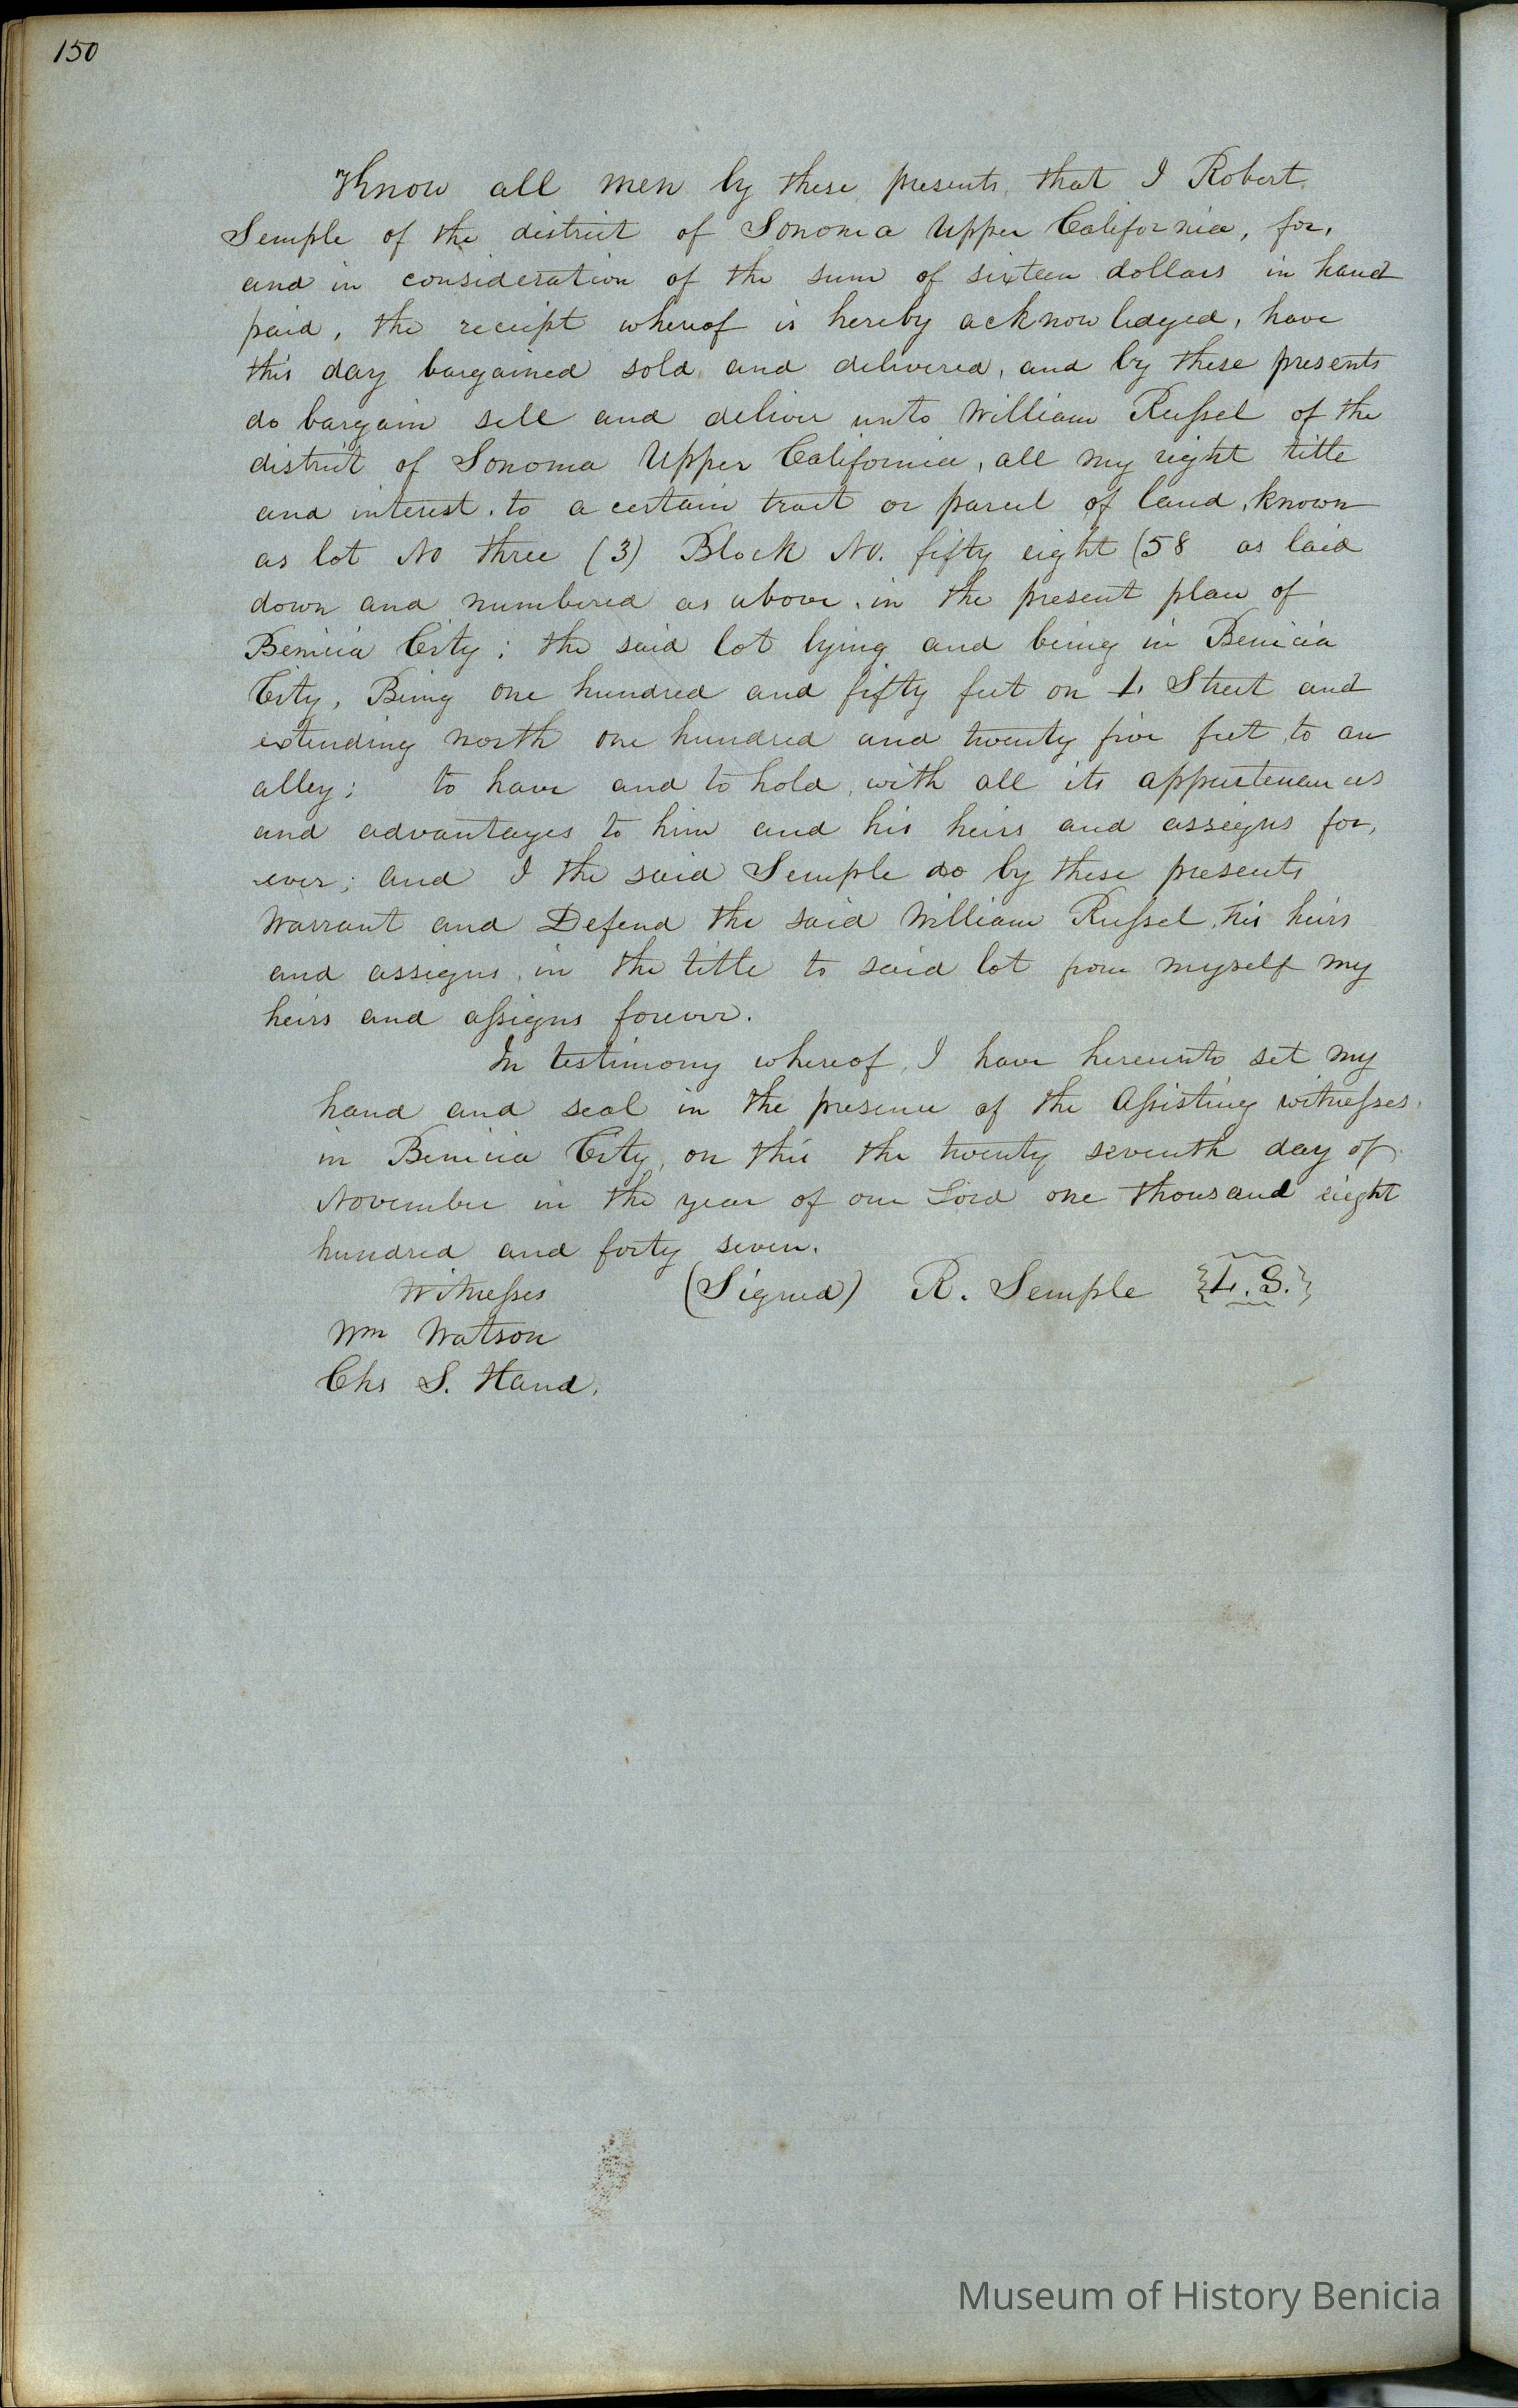 150
Know all men by these presents, that I Robert
Semple of the district of Sonoma Upper California, for,
and in consideration of the sum of sixteen dollars in hand
paid, the receipt whereof is hereby acknowledged, have
this day bargained sold and delivered, and by these presents
do bargain sell and deliver unto William Russel of the
district of Sonoma Upper California, all my right title
and interest, to a certain tract or parcel of land, known
as lot No three (3) Block No. fifty eight (58 as laid
down and numbered as above, in the present plan of
Benicia City; the said lot lying and being in Benicia
City, Being one hundred and fifty feet on L. Street and
extending north one hundred and twenty five feet, to an
alley; to have and to hold, with all its appurtenances
and advantages to him and his heirs and assigns for,
ever; and I the said Semple do by these presents
Warrant and Defend the said William Russel, his heirs
and assigns, in the title to said lot from myself my
heirs and assigns forever.
In testimony whereof, I have hereunto set my
hand and seal in the presence of the Assisting witnesses,
in Benicia City, on this the twenty seventh day of
November in the year of our Lord one thousand eight
hundred and forty seven.
Witnesses (Signed) R. Semple {L.S.}
Wm Watson
Chs S. Hand.
Museum of History Benicia